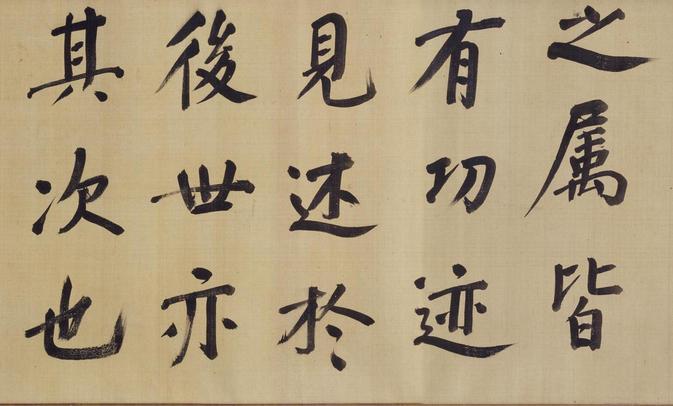 之属皆
有功迹
見述於
後世亦
其次也